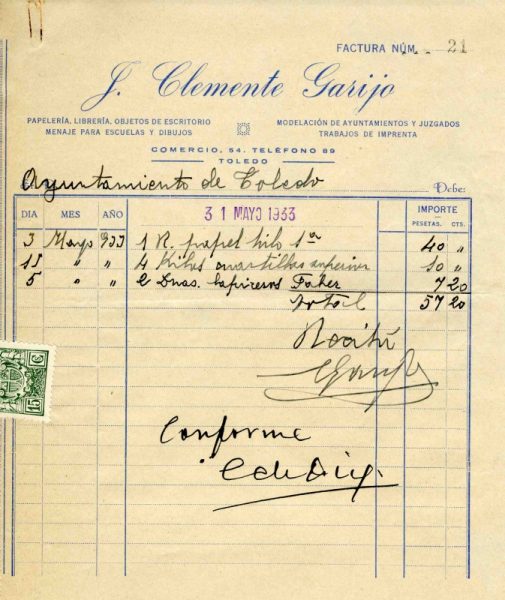 FACTURA NÚM. 21
J. Clemente Garijo
PAPELERÍA, LIBRERÍA, OBJETOS DE ESCRITORIO
MENAJE PARA ESCUELAS Y DIBUJOS
MODELACIÓN DE AYUNTAMIENTOS Y JUZGADOS
TRABAJOS DE IMPRENTA
COMERCIO, 54. TELÉFONO 89
TOLEDO
Ayuntamiento de Toledo Debe:
DIA MES AÑO 31 MAYO 1933 IMPORTE
PESETAS. CTS.
3 Mayo 933 1 R. papel hilo 1ª 40 "
15 " " 4 Kilos cuartillas superior 10 "
5 " " 2 Dnas. lapiceros Faber 7 20
Total 57 20
Recibí
Garijo
Conforme
15 C